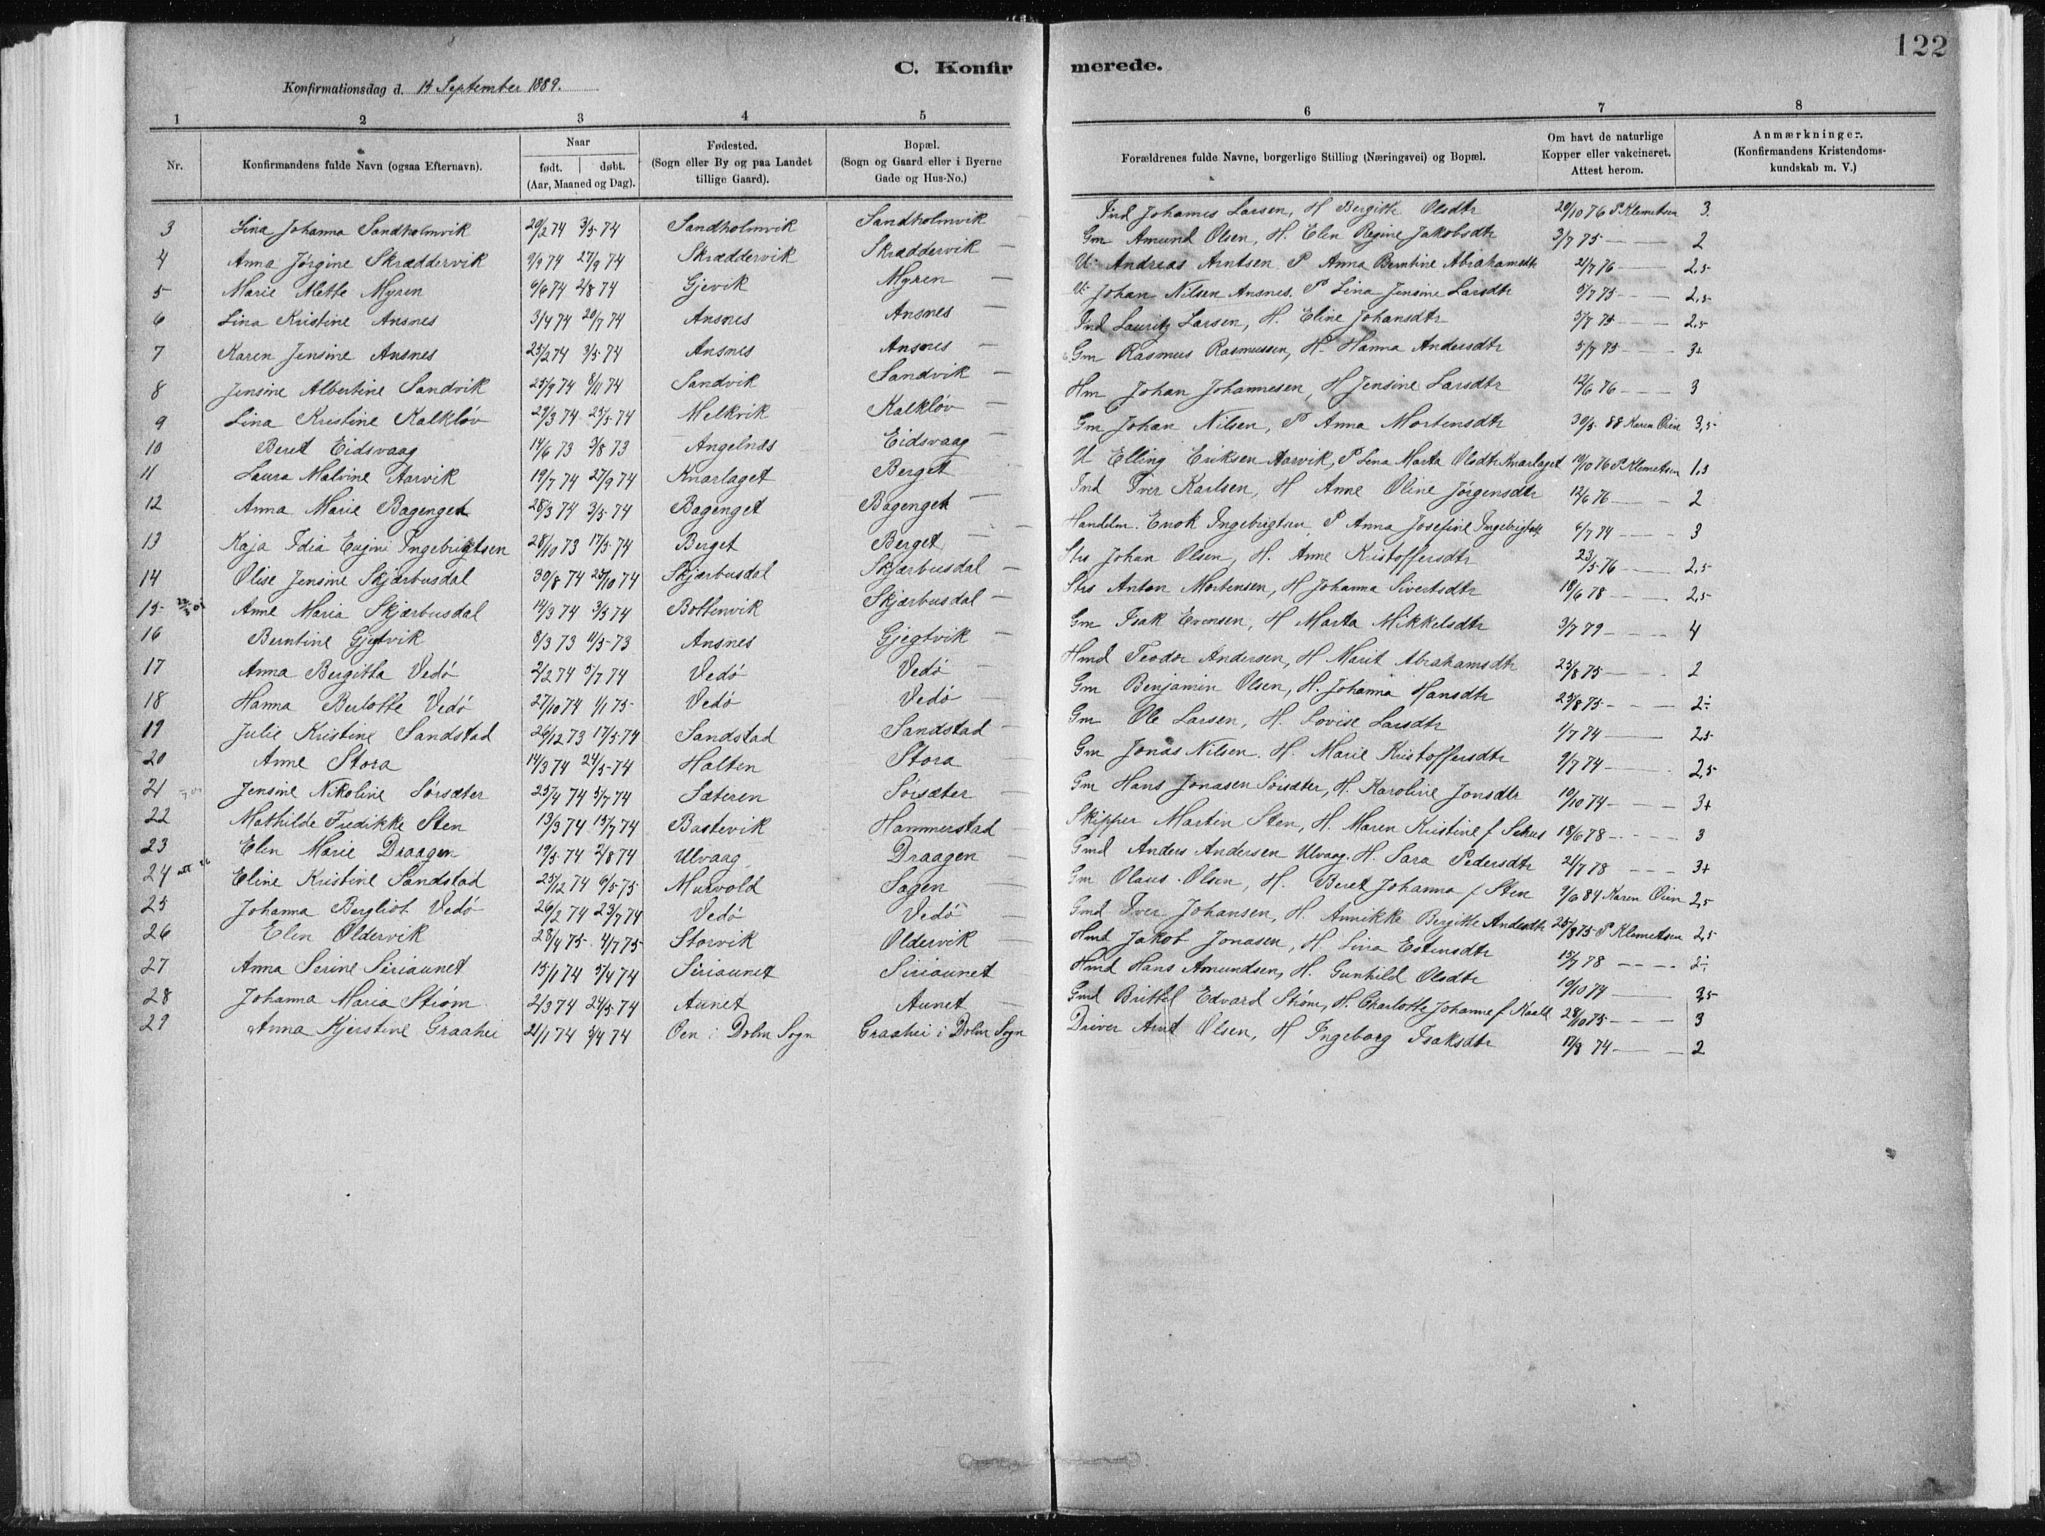 122
C. Konfirmerede.
Konfirmationsdag d. 14 September 1889.
1 2 3 4 5 6 7 8
Nr. | Konfirmandens fulde Navn (ogsaa Efternavn). | Naar født. døbt. (Aar, Maaned og Dag). | Fødested. (Sogn eller By og paa Landet tillige Gaard). | Bopæl. (Sogn og Gaard eller i Byerne Gade og Hus-No.) | Forældrenes fulde Navne, borgerlige Stilling (Næringsvei) og Bopæl. | Om havt de naturlige Kopper eller vakcineret. Attest herom. | Anmærkninger. (Konfirmandens Kristendomskundskab m. V.)
3 Lina Johanna Sandholmvik 20/2 74 3/5 74 Sandholmvik Sandholmvik — Ind Johannes Larsen, H Bergitte Olsdtr 20/10 76 P Klemetsen 3
4 Anna Jørgine Skræddervik 9/9 74 27/9 74 Skræddervik Skræddervik — Gm Amund Olsen, H. Elen Regine Jakobsdtr 3/7 75 — 2
5 Marie Mette Myren 6/6 74 2/8 74 Gjevik Myren — U. Andreas Arntsen P Anna Berntine Abrahamsdtr 21/7 76 — 2,5
6 Lina Kristine Ansnes 3/4 74 20/7 74 Ansnes Ansnes — U. Johan Nilsen Ansnes. P Lina Jensine Larsdtr 5/7 75 — 2,5
7 Karen Jensine Ansnes 25/2 74 3/5 74 Ansnes Ansnes — Ind Lauritz Larsen, H. Eline Johansdtr 5/7 75 — 2,5
8 Jensine Albertine Sandvik 25/9 74 8/11 74 Sandvik Sandvik — Gm Rasmus Rasmussen, H. Hanna Andersdtr 5/7 75 — 3+
9 Lina Kristine Kalkløv 29/3 74 25/5 74 Melkvik Kalkløv — Hm Johan Johannesen, H Jensine Larsdtr 12/6 76 — 3
10 Beret Eidsvaag 14/6 73 3/8 73 Angelnæs Eidsvaag — Gm Johan Nilsen, P Anna Mortensdtr 30/5 88 Karen Øien 3,5
11 Laura Malvine Aarvik 19/7 74 27/9 74 Knarlaget Berget — U Elling Eriksen Aarvik, P Lina Marta Olsdtr Knarlaget 19/10 76 P Klemetsen 1,3
12 Anna Marie Bagenget 28/3 74 3/5 74 Bagenget Bagenget — Ind Iver Karlsen, H Anne Oline Jørgensdtr 12/6 76 — 2
13 Kaja Idia Eugini Ingebrigtsen 28/10 73 17/5 74 Berget Berget — Handelm. Enok Ingebrigtsen P Anna Josefine Ingebrigtsdtr 6/7 74 — 3
14 Olise Jensine Skjærbusdal 30/8 74 25/10 74 Skjærbusdal Skjærbusdal — Strs Johan Olsen, H. Anne Kristoffersdtr 23/5 76 — 2,5
15 Anne Maria Skjærbusdal 14/3 74 3/5 74 Bottenvik Skjærbusdal — Strs Anton Mortensen, H Johanna Sivertsdtr 18/6 78 — 2,5
16 Berntine Gjetvik 8/3 73 11/5 73 Ansnes Gjegtvik — Gm Isak Evensen, H Marta Mikkelsdtr 3/7 79 — 4
17 Anna Bergitta Vedø 2/2 74 5/7 74 Vedø Vedø — Hmd Teodor Andersen, H Marit Abrahamsdtr 25/8 75 — 2
18 Hanna Berlotte Vedø 27/10 74 1/1 75 Vedø Vedø — Gm Benjamin Olsen, H. Johanna Hansdtr 25/8 75 — 2÷
19 Julie Kristine Sandstad 26/12 73 17/5 74 Sandstad Sandstad — Gm Ole Larsen, H. Lovise Larsdtr 1/7 74 — 2,5
20 Anne Stora 14/3 74 24/5 74 Holten Stora — Gm Jonas Nilsen. H Marie Kristoffersdtr 9/7 74 — 2,5
21 Jensine Nikoline Sørsæter 25/4 74 5/7 74 Sæteren Sørsæter — Gm Hans Jonasen Sørsæter, H. Karoline Jonsdtr 10/10 74 — 3+
22 Mathilde Fredikke Sten 13/3 74 13/7 74 Bastevik Hammerstad — Skipper Martin Sten, H. Maren Kristine f Schus 18/6 78 — 3
23 Elen Marie Draagen 19/5 74 2/8 74 Ulvaag Draagen — Gmd Anders Andersen Ulvaag. H. Sara Pedersdtr 21/7 78 — 3+
24 Eline Kristine Sandstad 25/12 74 6/5 75 Murvold Sagen — Gm Olaus Olsen, H. Beret Johanna f Sten 9/6 84 Karen Øien 2,5
25 Johanna Bergliot Vedø 26/2 74 23/7 74 Vedø Vedø — Gmd Iver Johansen, H. Annikke Bergitte Andersdtr 25/8 75 P Klemetsen 2,5
26 Elen Oldervik 28/4 75 4/7 75 Storvik Oldervik — Hmd Jakob Jonasen, H Lina Estensdtr 15/7 78 — 2÷
27 Anna Serine Siriaunet 15/1 74 5/4 74 Siriaunet Siriaunet — Hmd Hans Amundsen, H. Gunhild Olsdtr 10/10 74 — 3,5
28 Johanna Maria Strøm 2/3 74 24/5 74 Aunet Aunet — Gmd Brittel Edvard Strøm, H. Charlotte Johanne f Kaald 28/10 75 — 3
29 Anna Kjerstine Graahei 21/1 74 3/4 74 Øen i Dolm Sogn Graahei i Dolm Sogn Driver Arnt Olsen, H Ingeborg Isaksdtr 17/8 74 — 2